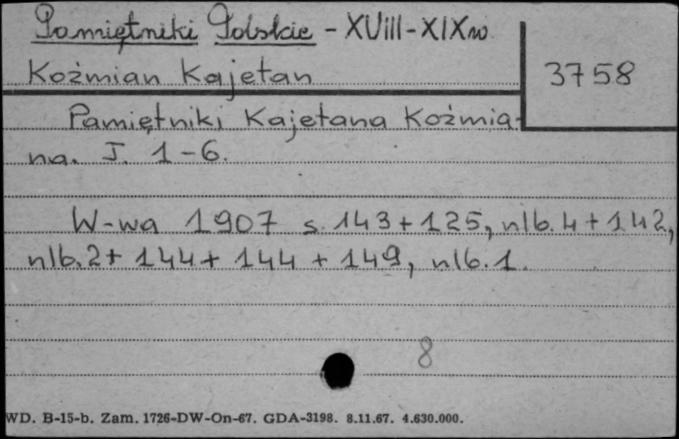 Pamiętniki Polskie - XVIII-XIX w.
Koźmian Kajetan
3758
Pamiętniki Kajetana Koźmia-
na. T. 1-6.
W-wa 1907 s. 143+125, nlb. 4+142,
nlb. 2+ 144+ 144 + 149, nlb. 1.
8
WD. B-15-b. Zam. 1726-DW-On-67. GDA-3198. 8.11.67. 4.630.000.